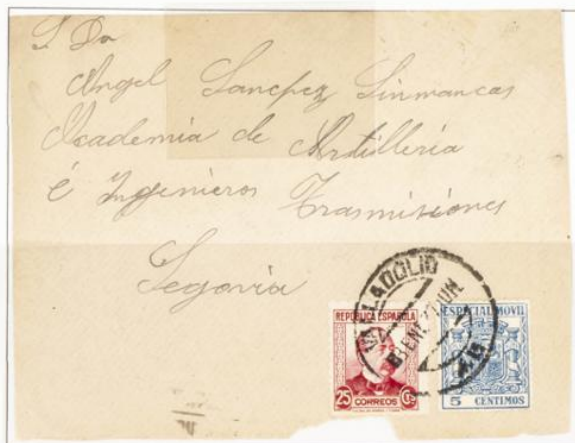 S. Dn
Angel Sanchez Sinmancas
Academia de Artilleria
é Ingenieros Trasmisiones
Segovia
VALLADOLID
ENE
REPÚBLICA ESPAÑOLA
25 CORREOS Cs
ESPECIAL MOVIL
5 CENTIMOS